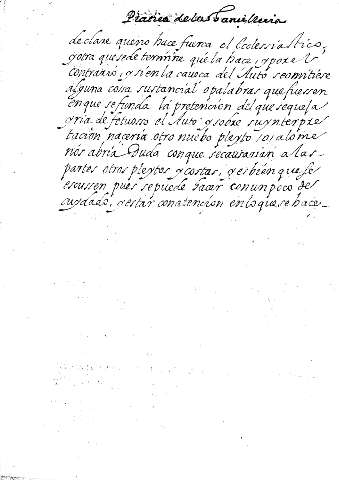 Pratica de la Chancilleria
declare que no hace fuerza el Ecclessiastico,
y otra que se determine que la hace, y por el
contrario, y si en la caveca del Auto se omitiese
alguna cosa sustancial o palabras que fuessen
en que se funda la pretencion del que se quexa
yria defetuoso el Auto y sobre su ynterpre
tacion naceria otro nuebo pleyto, o, a lo me
nos abria Duda con que se causarian a las
partes otros pleytos y costas, y es bien que se
escussen pues se puede hacer con un poco de
cuydado, y estar con atencion en lo que se hace-